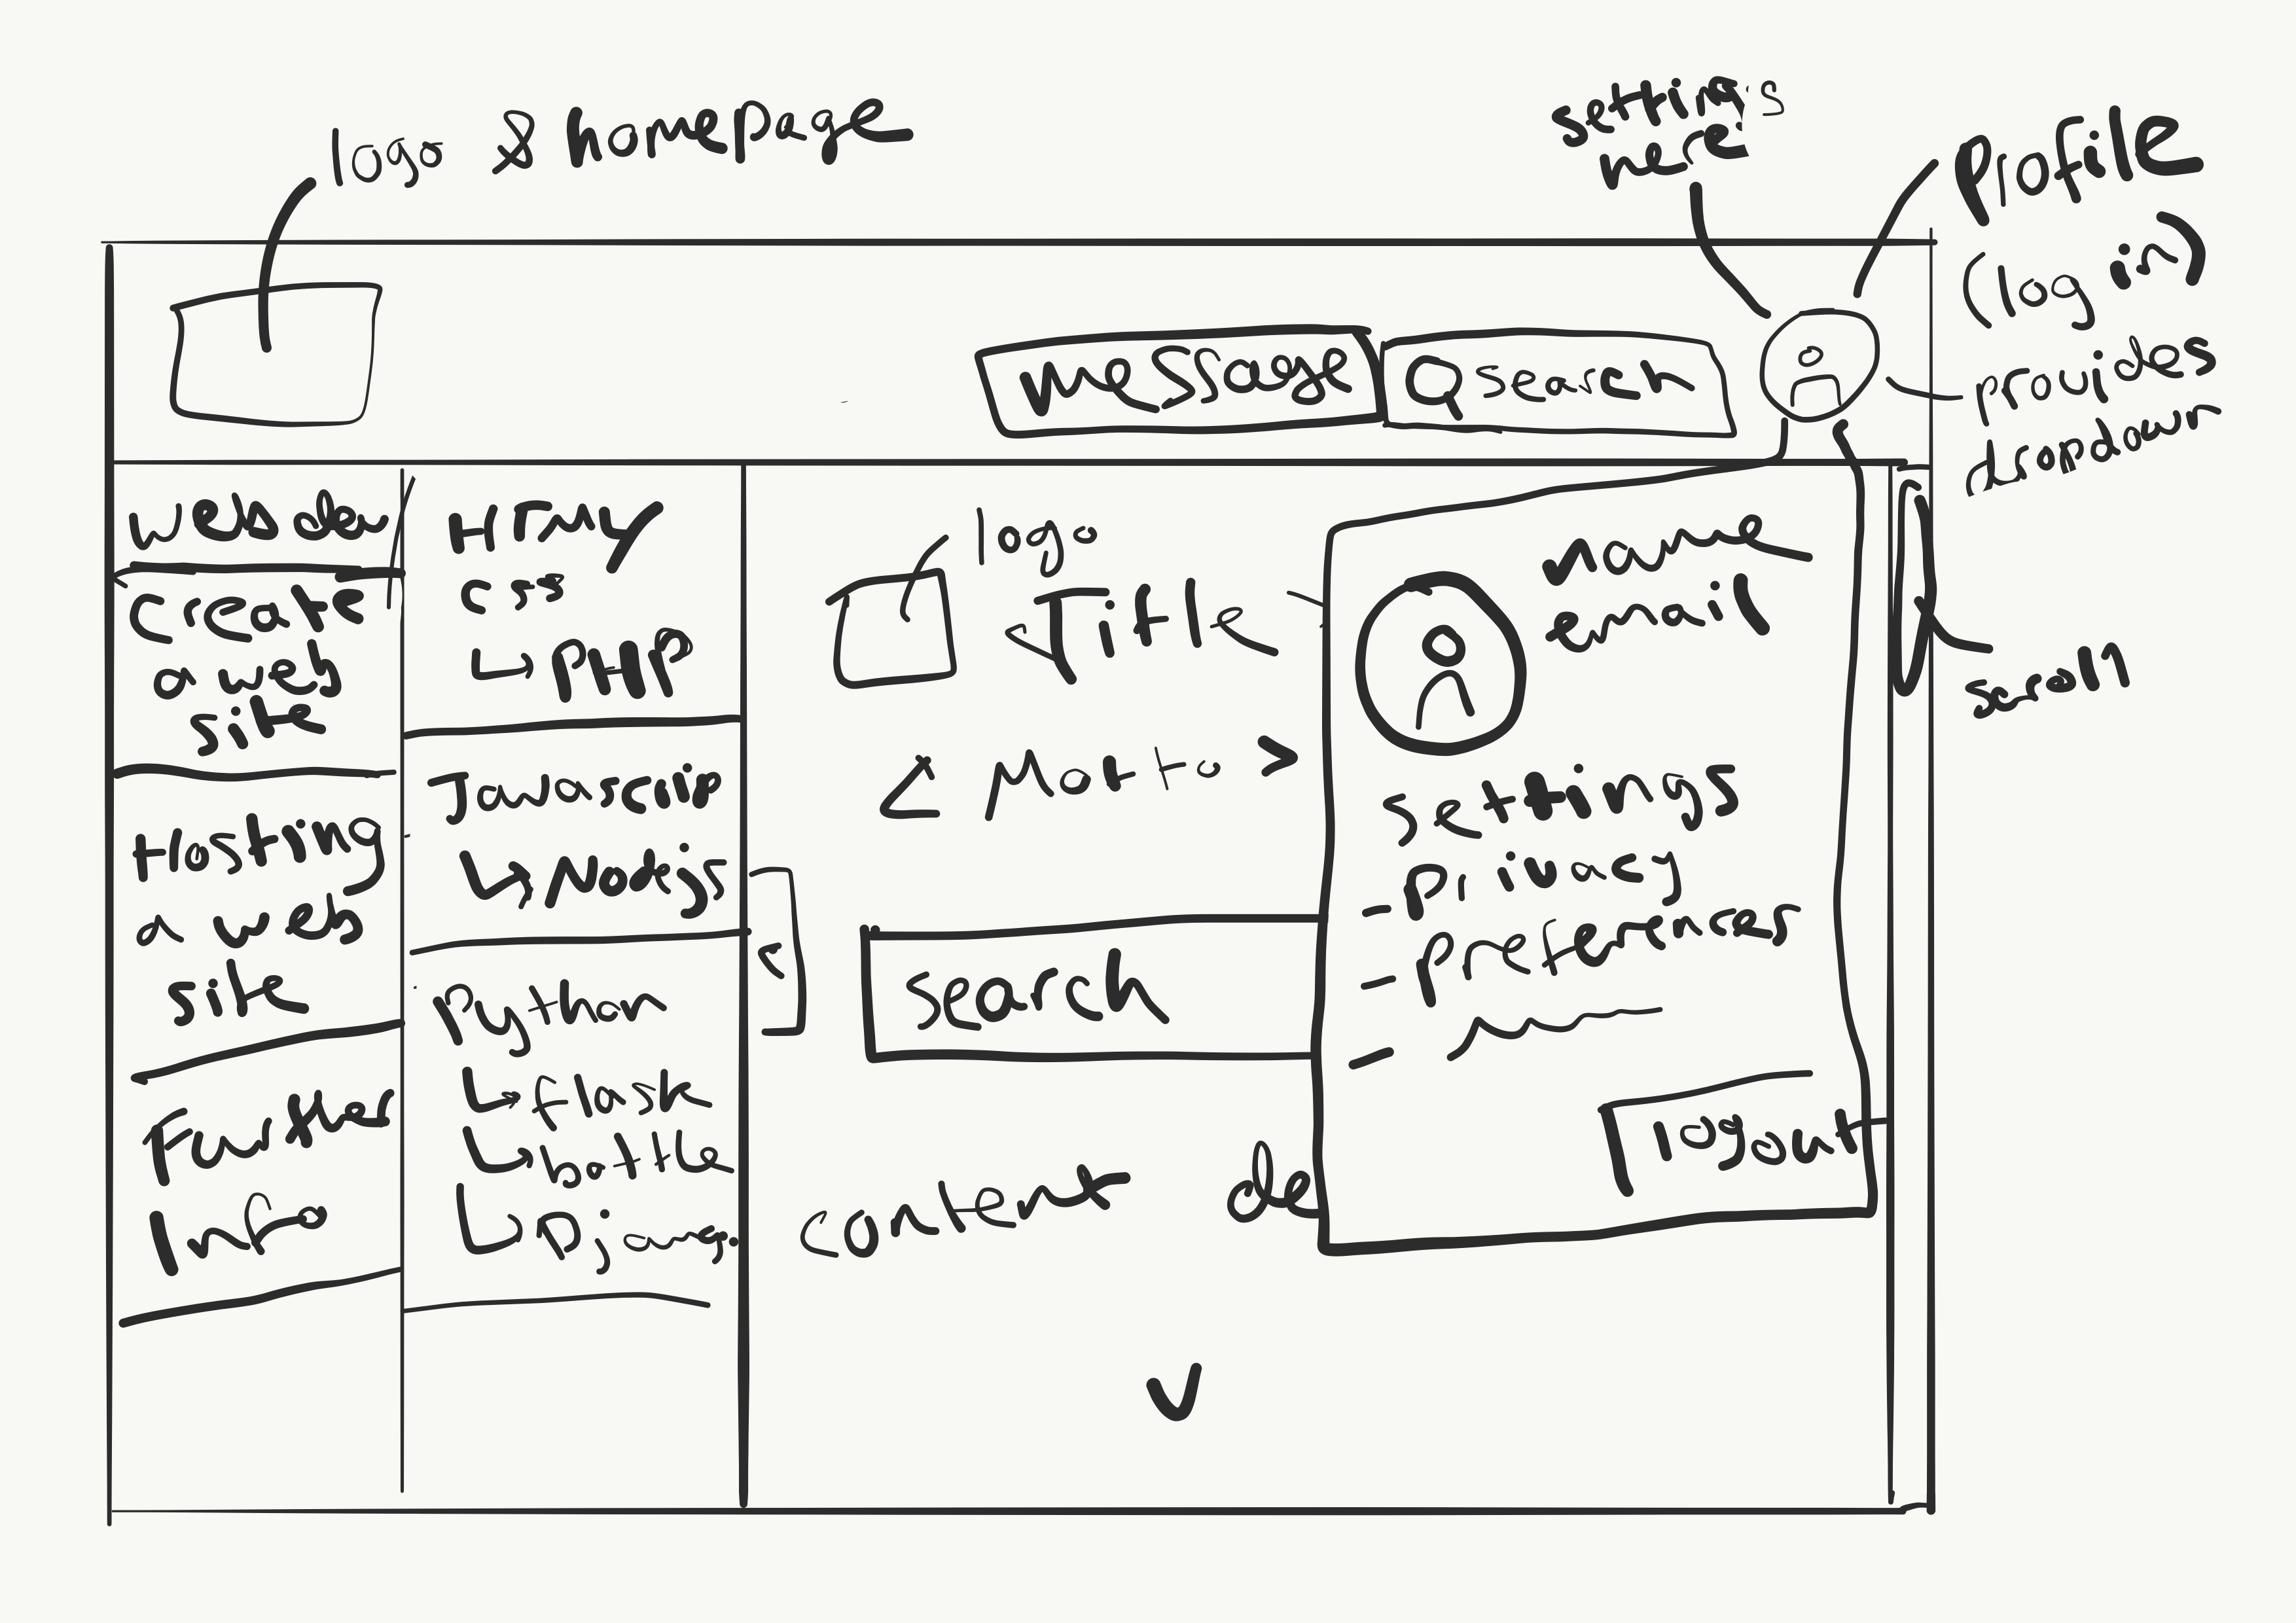 logo & homepage
settings
here
Profile
(log in)
provides
dropdown
message
search
web dev
create
a web
site
Hosting
a web
site
Further
Info
HTML
css
PHP
Javascrip
Nodejs
Python
flask
bottle
Django.
logo
<Title
< Motto >
search
content de
name
email
settings
- privacy
- preferences
-
logout
scroll